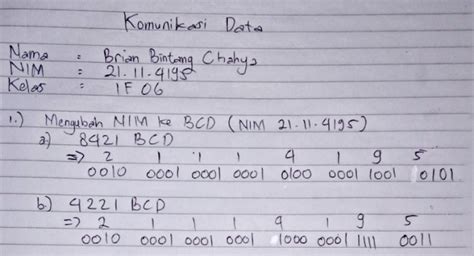 Komunikasi Data
Nama : Brian Bintang Chahya
NIM : 21.11.4195
Kelas : IF 06
1.) Mengubah NIM ke BCD (NIM 21.11.4195)
a) 8421 BCD
=> 2 1 1 1 4 1 9 5
0010 0001 0001 0001 0100 0001 1001 0101
b) 4221 BCD
=> 2 1 1 1 4 1 9 5
0010 0001 0001 0001 1000 0001 1111 0011